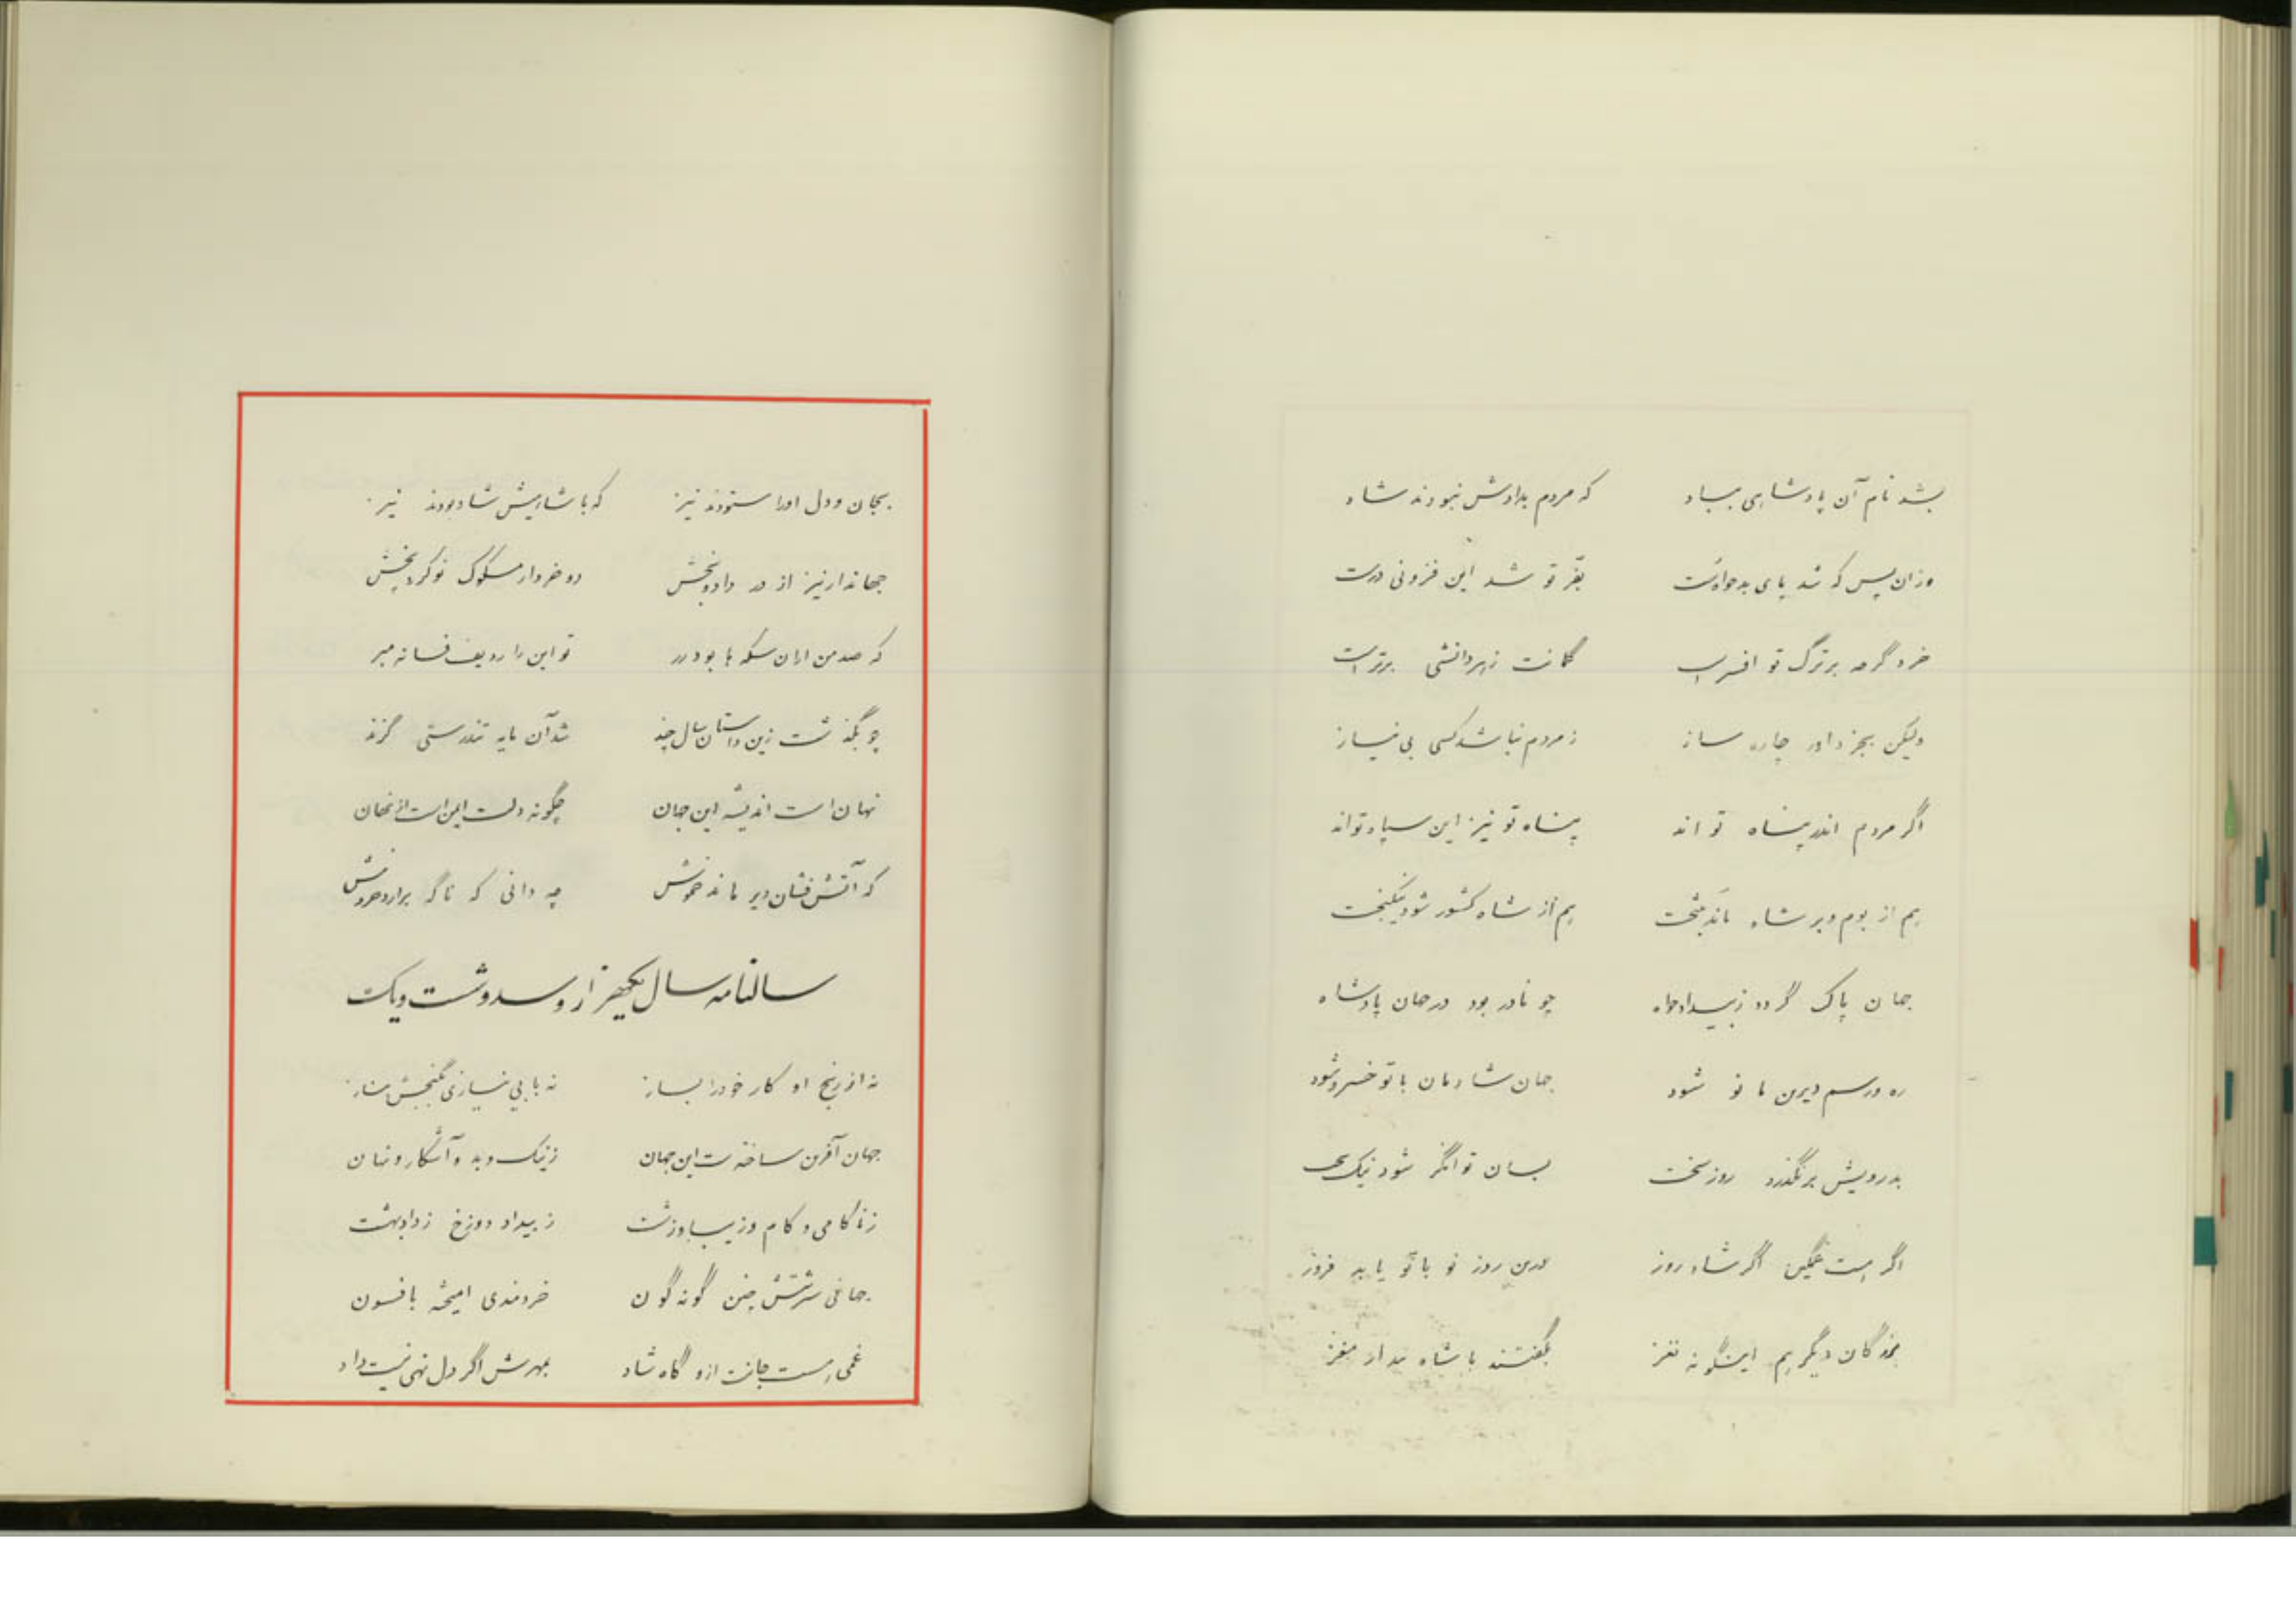 بشد نام آن پادشاهی بباد که مردم بدادش نبودند شاد
وزان پس که شد پای بدخواه سست بفرّ تو شد این فزونی درست
خرد گرچه بر ترگ تو افسر است گمانت زهر دانشی برتر است
ولیکن بجز داور چاره ساز ز مردم نباشد کسی بی نیاز
اگر مردم اندر پناه تو اند پناه تو نیز این سپاه تواند
هم از بوم و بر شاه ماند بتخت هم از شاه کشور شود نیکبخت
جهان پاک گردد ز بیدادخواه چو نادر بود در جهان پادشاه
ره و رسم دیرین ما نو شود جهان شادمان با تو خسرو شود
بدرویش برنگذرد روز سخت بسان توانگر شود نیک بخت
اگر هست غمگین اگر شاد روز بدین روز نو با تو یابد فروز
بزرگان دیگر هم اینگونه نغز بگفتند با شاه بیدار مغز
بجان و دل او را ستودند نیز که با شادیش شاد بودند نیز
جهاندار نیز از در داد و بخش دو خروار مسکوک نو کرد پخش
که صد من ازان سکه ها بود زر تو این را ردیف فسانه مبر
چو بگذشت زین داستان سال چند شد آن مایه تندرستی گزند
نهان است اندیشه این جهان چگونه دلت ایمن است از نهان
که آتش فشان دیر ماند خموش چه دانی که ناگه برآرد خروش
سالنامه سال یکهزار و سیصد و شصت و یک
نه از رنج او کار خود را بساز نه با بی نیازی بگنجش مناز
جهان آفرین ساخته ست این جهان ز نیک و بد و آشکار و نهان
ز ناکامی و کام و زیبا و زشت ز بیداد دوزخ ز داد بهشت
جهانی سرشتش چنین گونه گون خردمندی آمیخته با فسون
غمی هست جانت ازو گاه شاد بمهرش اگر دل نهی نیست داد